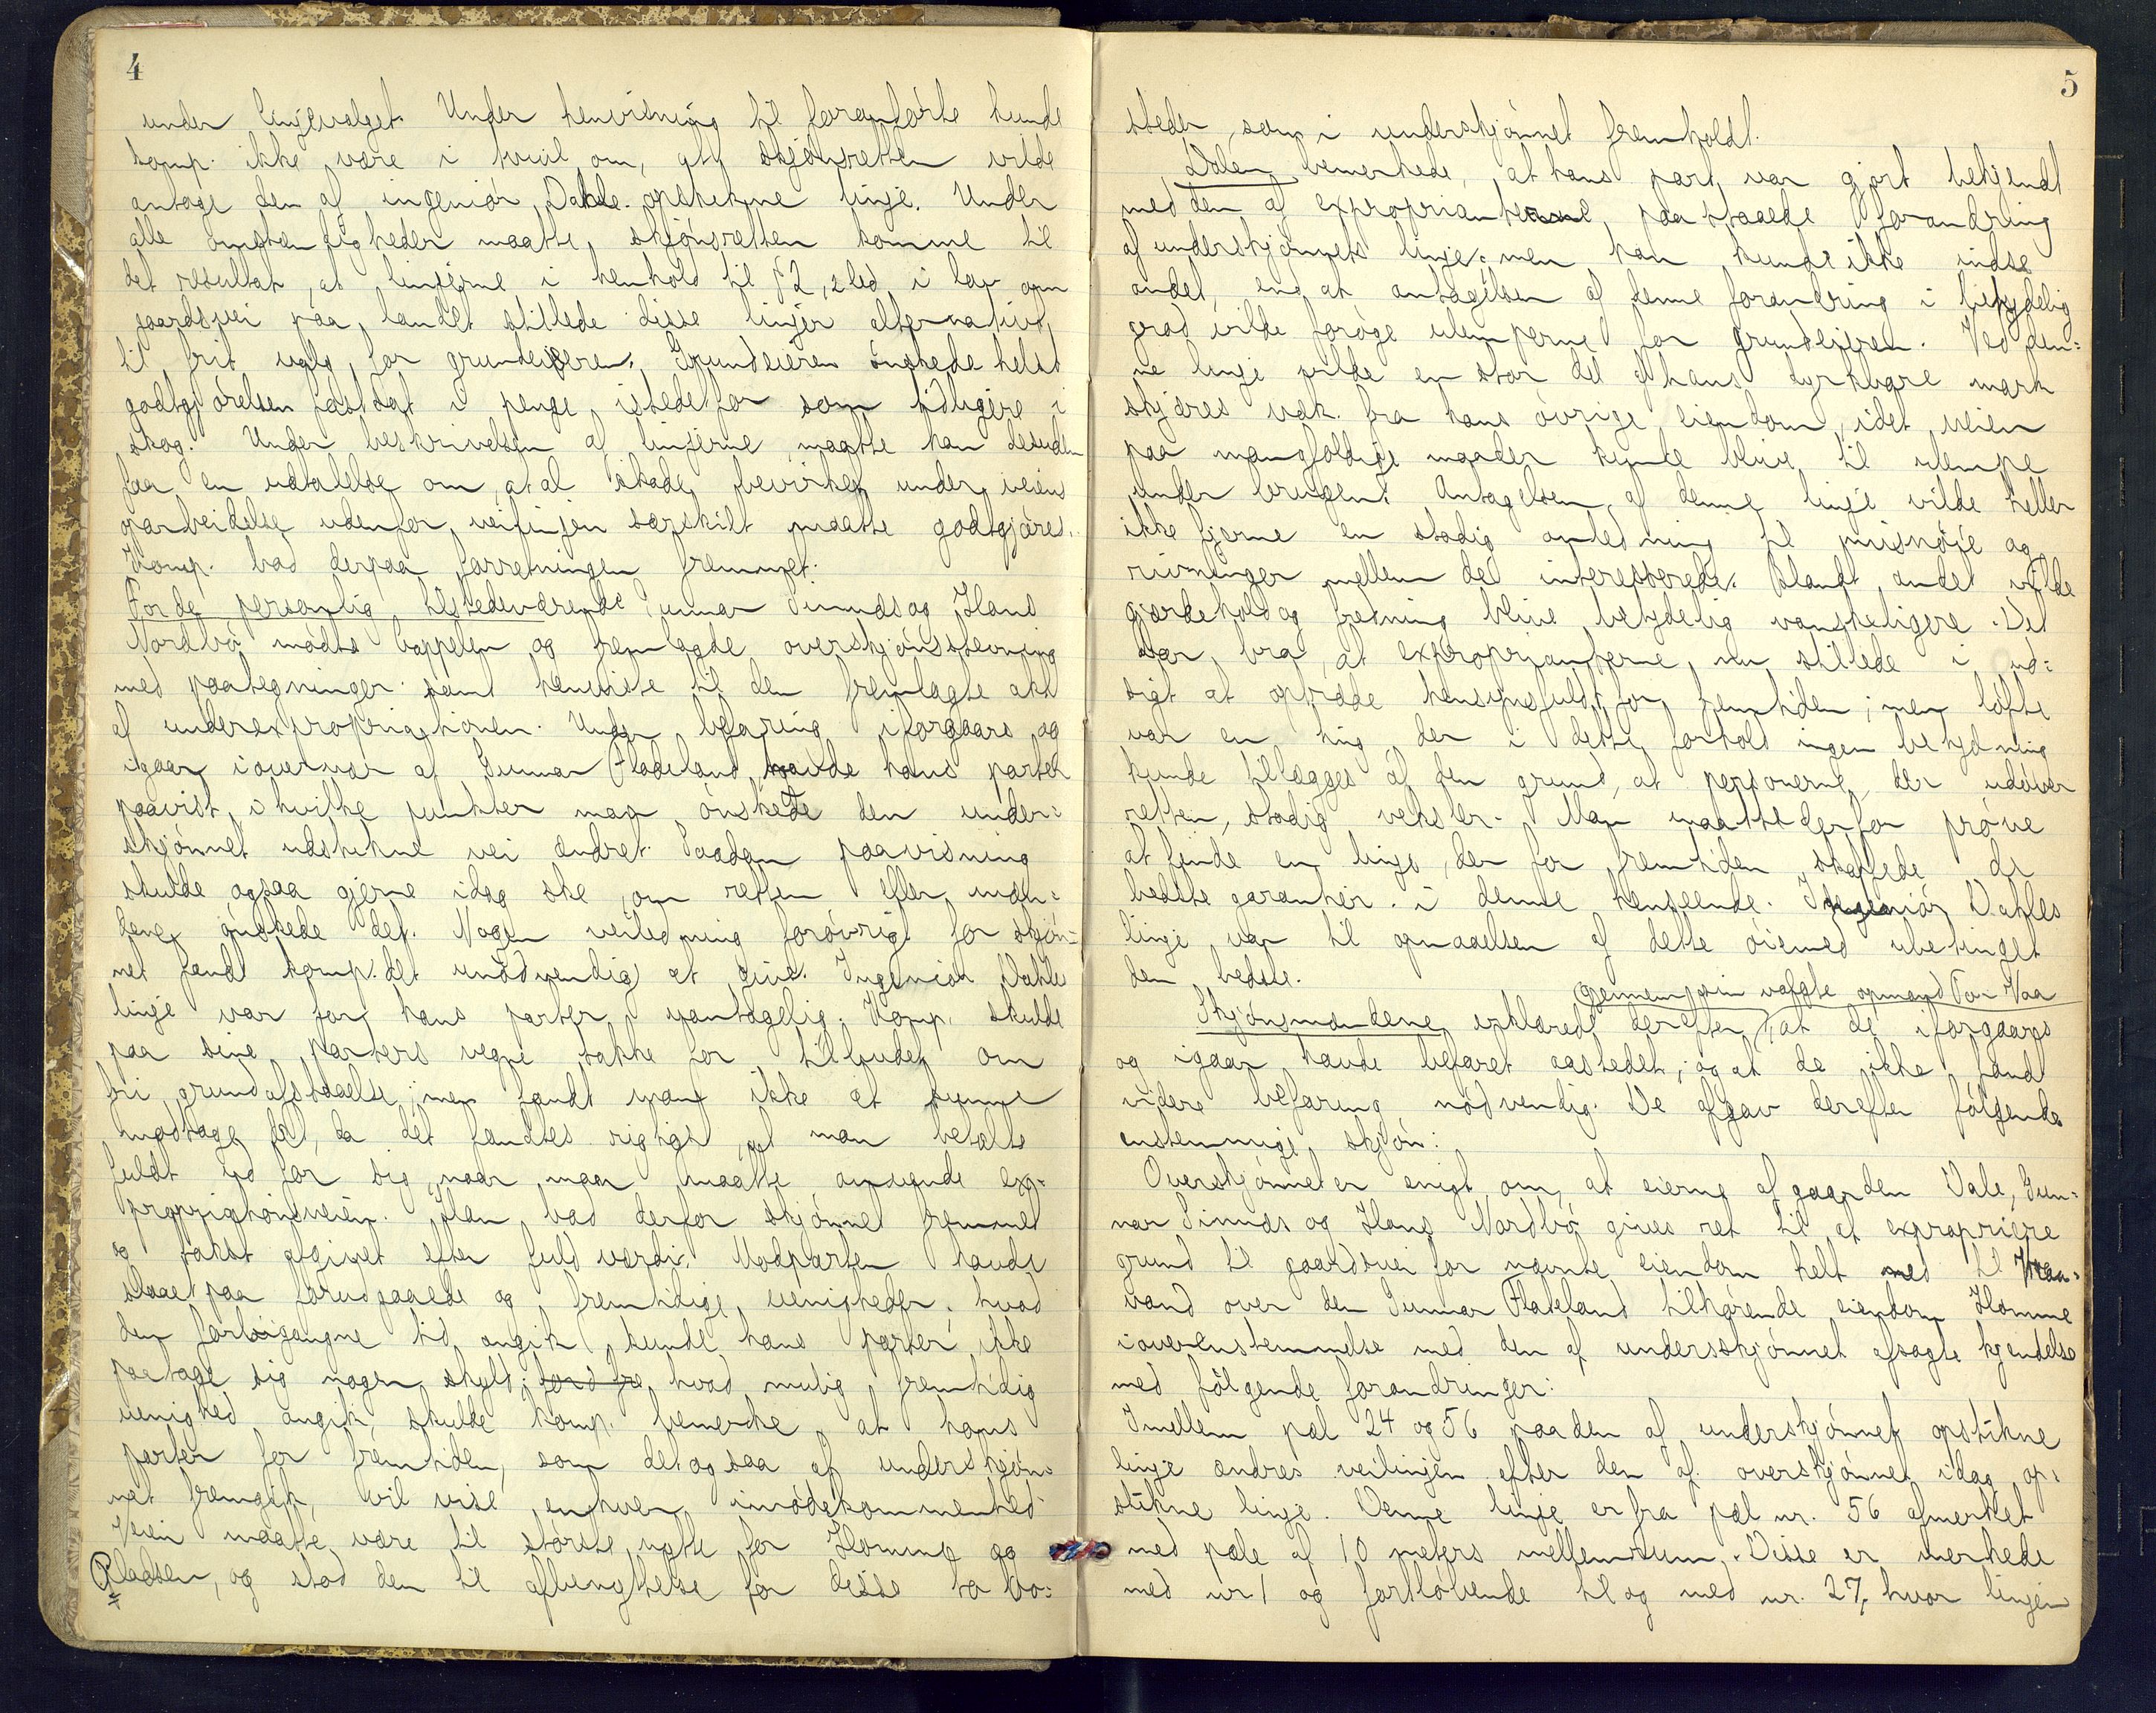 4
under linjevalget. Under henvisning til foranførte kunde
komp. ikke være i tvivl om, at skjønsretten vilde
antage den af ingeniør Dahle opstukne linje. Under
alle omstændigheder maatte skjønsretten komme til
det resultat, at linjerne i henhold til § 2, 2 led i lov om
gaardsvei paa landet stillede disse linjer alternativt
til frit valg for grundeieren. Grundeieren ønskede helst
godtgjørelsen fastsat i penge istedetfor som tidligere i
skog. Under beskrivelsen af linjerne maatte han desuden
faa en udtalelse om, at al skade bevirket under veiens
oparbeidelse udenfor veilinjen særskilt maatte godtgjøres.
Komp. bad derpaa forretningen fremmet.
For de personlig tilstedeværende Gunnar Simnds og Hans
Nordbø mødte Coppelen og fremlagde overskjønsstevning
med paategninger samt henviste til den fremlagte akt
af underexpropriationen. Under befaring iforgaars og
igaar i overvær af Gunnar Flateland havde hans parter
paavist, i hvilke punkter man ønskede den under=
skjønnet udstukne vei ændret. Saadan paavisning
skulde ogsaa gjerne idag ske, om retten eller mæn=
dene ønskede det. Nogen veiledning forøvrigt for skjøn=
net fandt komp. det unødvendig at give. Ingeniør Dahles
linje var for hans parter uantagelig. Komp. skulde
paa sine parters vegne takke for tilbudet om
fri grundafstaaelse; men fandt man ikke at kunne
modtage det, da det fandtes rigtigt, at man betalte
fuldt ud for sig, naar man maatte anvende ex=
propriationsveien. Han bad derfor skjønnet fremmet
og takst afgivet efter fuld værdi. Modparten havde
slaaet paa forudgaaede og fremtidige uenigheder; hvad
den forbigangne tid angik, kunde hans parter ikke
paatage sig nogen skyld; hvad mulig fremtidig
uenighed angik, skulde komp. bemerke, at hans
parter for fremtiden, som det ogsaa af underskjøn=
net fremgik, vil vise enhver imødekommenhed
Veien maatte være til største nytte for Homme og
Pladsen, og stod den til afbenyttelse for disse to bo=
5
steder, som i underskjønnet fremholdt.
Dalen bemerkede, at hans part var gjort bekjendt
med den af exproprianterne paastaaede forandring
af underskjønnets linje; men han kunde ikke indse
andet, end at antagelsen af denne forandring i betydelig
grad vilde forøge ulemperne for grundeieren. Ved den=
ne linje vilde en stor del af hans dyrkbare mark
skjæres væk fra hans øvrige eiendom, idet veien
paa mangfoldige maader kunde blive til ulempe
under brugen. Antagelsen af denne linje vilde heller
ikke fjerne en stadig anledning til misnøie og
rivninger mellem de interesserede. Blandt andet vilde
gjærdehold og fredning blive betydelig vanskeligere. Det
var bra, at exproprianterne nu stillede i ud=
sigt at optræde hensynsfuldt for fremtiden; men løfte
var en ting, der i dette forhold ingen betydning
kunde tillægges af den grund, at personerne, der udøver
retten, stadig veksler. Man maatte derfor prøve
at finde en linje, der for fremtiden skaffede de
bedste garantier i denne henseende. Ingeniør Dahles
linje var til opnaaelsen af dette øiemed ubetinget
den bedste.
gjennem sin valgte opmand Tor Vaa
Skjønsmændene erklærede derefter, at de iforgaars
og igaar havde befaret aastedet, og at de ikke fandt
videre befaring nødvendig. De afgav derefter følgende
enstemmige skjøn:
Overskjønnet er enigt om, at eierne af gaarden Dale, Gun=
nar Simnds og Hans Nordbø gives ret til at expropriere
grund til gaardsvei for nævnte eiendom helt ned til Vraa=
vand over den Gunnar Flateland tilhørende eiendom Homme
i overenstemmelse med den af undersskjønnet afsagte kjendelse
med følgende forandringer:
Imellem pæl 24 og 56 paa den af underskjønnet opstikne
linje ændres veilinjen efter den af overskjønnet idag op=
stikne linje. Denne linje er fra pæl nr. 56 afmerket
med pæle af 10 meters mellemrum. Disse er merkede
med nr 1 og fortløbende til og med nr. 27, hvor linjen